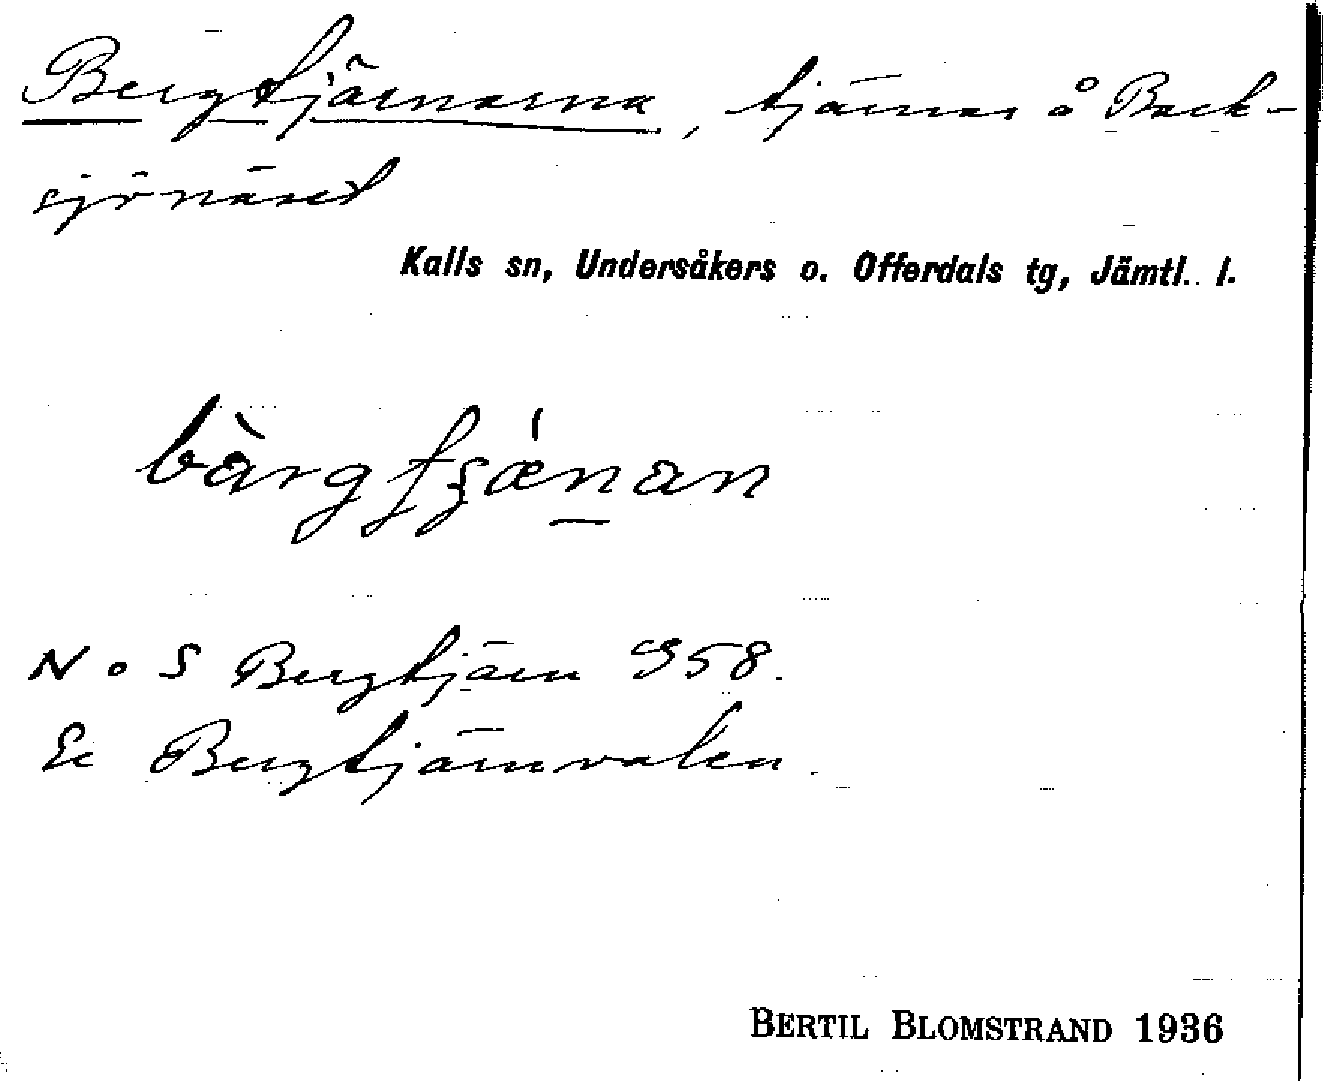 Bergtjärnarna, tjärnar å Back-
sjönäset
Kalls sn, Undersåkers o. Offerdals tg, Jämtl. l.
N o S Bergtjärn 958.
Se Bergtjärnvalen.
BERTIL BLOMSTRAND 1936